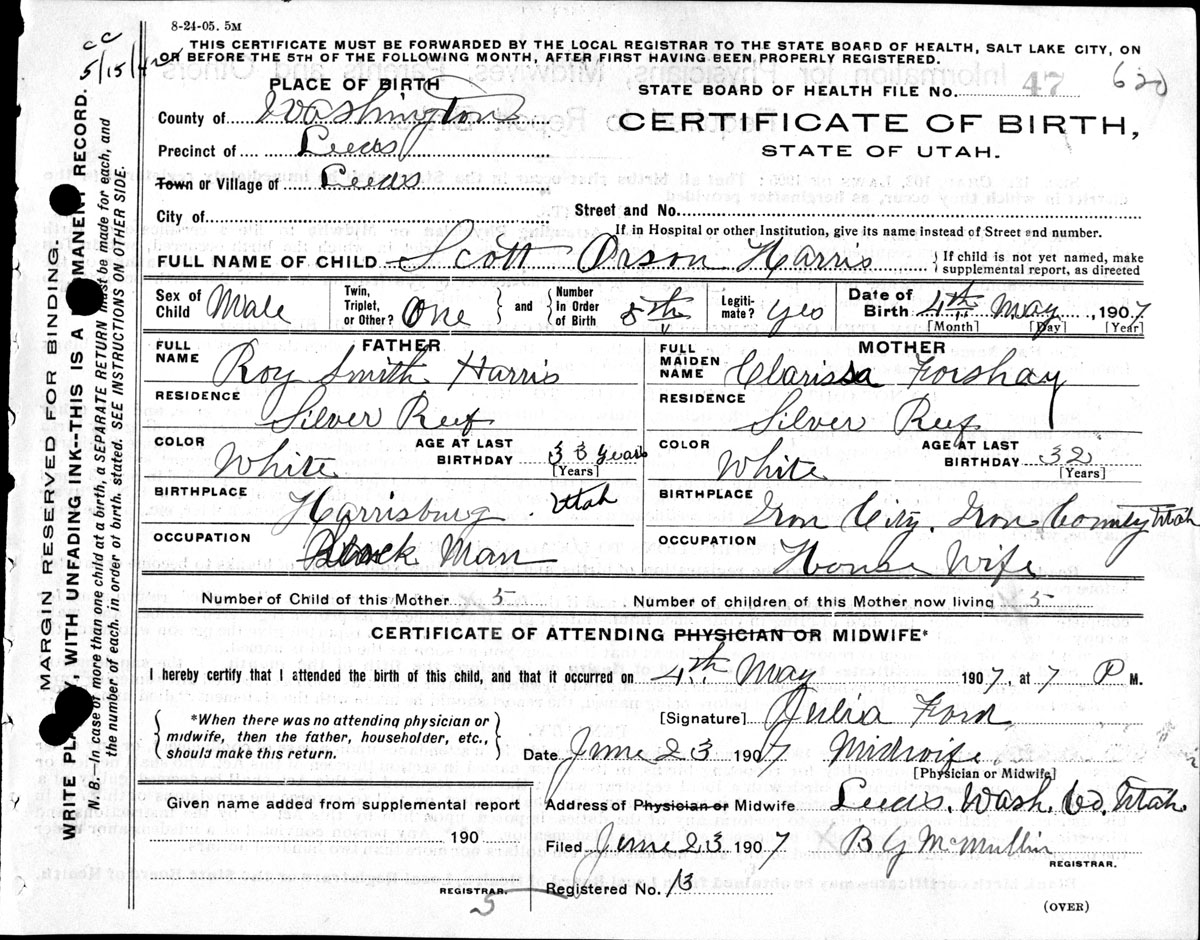 8-24-05. 5M
cc
5/15/42
THIS CERTIFICATE MUST BE FORWARDED BY THE LOCAL REGISTRAR TO THE STATE BOARD OF HEALTH, SALT LAKE CITY, ON
OR BEFORE THE 5TH OF THE FOLLOWING MONTH, AFTER FIRST HAVING BEEN PROPERLY REGISTERED.
PLACE OF BIRTH
STATE BOARD OF HEALTH FILE No. 47 620
County of Washington
CERTIFICATE OF BIRTH,
Precinct of Leeds
STATE OF UTAH.
Town or Village of Leeds
City of
Street and No.
If in Hospital or other Institution, give its name instead of Street and number.
FULL NAME OF CHILD Scott Orson Harris
If child is not yet named, make
supplemental report, as directed
Sex of Child Male Twin, Triplet, or Other? One and Number in Order of Birth 5th Legiti- mate? Yes Date of Birth 4th May, 1907
[Month] [Day] [Year]
FATHER
MOTHER
FULL NAME Roy Smith Harris
FULL MAIDEN NAME Clarissa Forshay
RESIDENCE Silver Reef
RESIDENCE Silver Reef
COLOR White AGE AT LAST BIRTHDAY 33 Years [Years]
COLOR White AGE AT LAST BIRTHDAY 32 [Years]
BIRTHPLACE Harrisburg Utah
BIRTHPLACE Iron City. Iron County Utah
OCCUPATION Stock Man
OCCUPATION House Wife
Number of Child of this Mother 5 Number of children of this Mother now living 5
CERTIFICATE OF ATTENDING PHYSICIAN OR MIDWIFE*
I hereby certify that I attended the birth of this child, and that it occurred on 4th May 1907, at 7 P M.
*When there was no attending physician or
midwife, then the father, householder, etc.,
should make this return.
[Signature] Julia Ford
Date June 23 1907 Midwife
[Physician or Midwife]
Given name added from supplemental report
190
REGISTRAR.
5
Address of Physician or Midwife Leeds. Wash. Co. Utah
Filed June 23 1907 B G McMullin
REGISTRAR.
Registered No. 13
(OVER)
MARGIN RESERVED FOR BINDING.
WRITE PLA , WITH UNFADING INK--THIS IS A MANENT RECORD.
N. B.—In case of more than one child at a birth, a SEPARATE RETURN must be made for each, and
the number of each, in order of birth, stated. SEE INSTRUCTIONS ON OTHER SIDE.